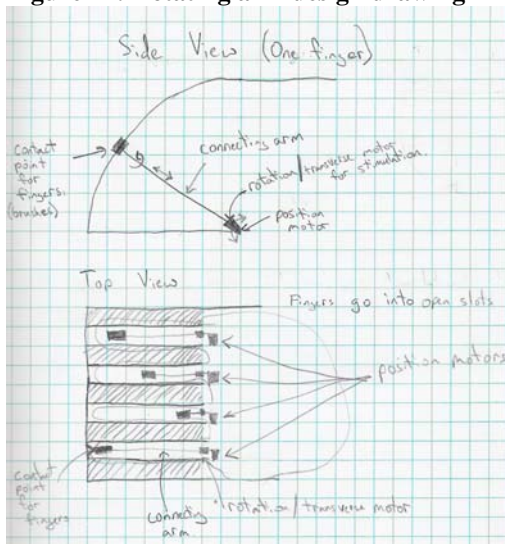 Side View (One finger)
contact
point
for
fingers.
(brushes)
connecting arm
rotation/transverse motor
for stimulation.
position
motor
Top View
Fingers go into open slots
position motors
contact
point
for
fingers
connecting
arm
rotation/transverse motor